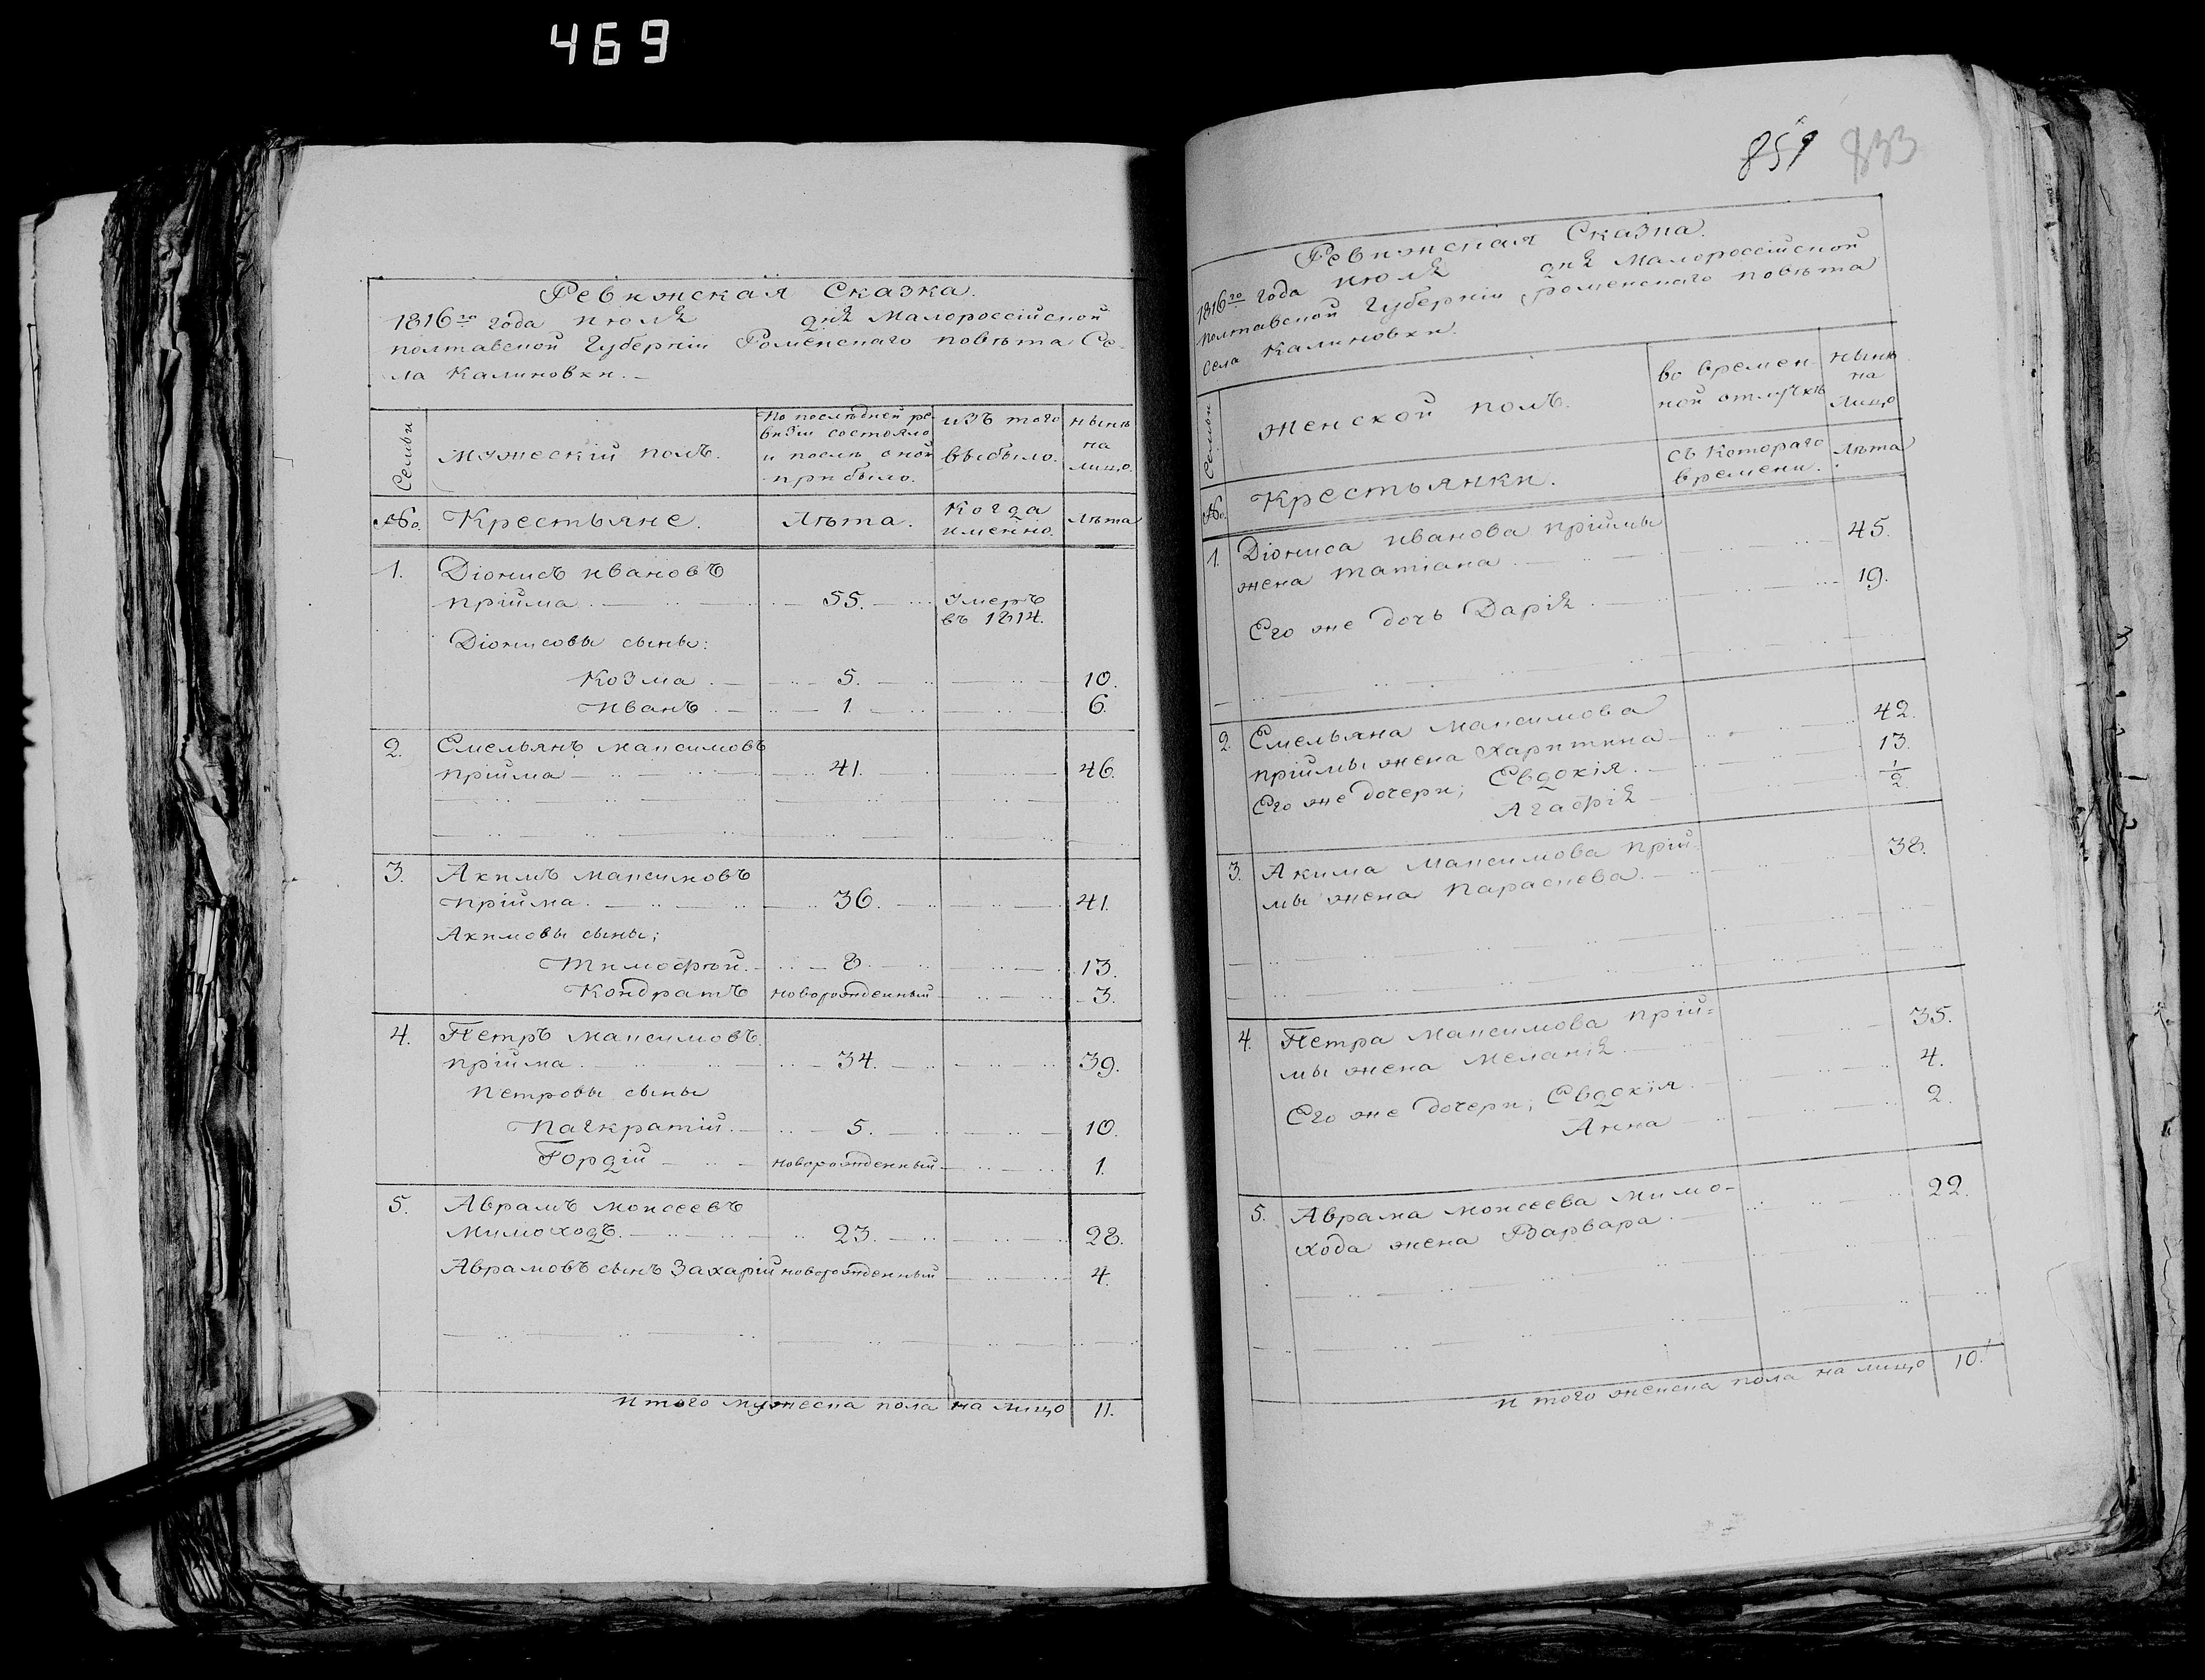 469
Ревижская Сказка.
1816го года июля дня Малороссійской
полтавской Губерніи Роменскаго повѣта Се-
ла Калиновки.
Семьи
Мужескій полъ.
По послѣдней ре
визіи состояло
и послѣ оной
прибыло.
изъ того
выбыло.
нынѣ
на
лицо.
№.
Крестьяне.
Лѣта.
Когда
именно.
лѣта
1. Діонисъ ивановъ
пріима. 55. умеръ
въ 1814.
Діонисовы сыны:
Козма 5. 10.
Иванъ 1. 6.
2. Емельянъ максимовъ
пріима 41. 46.
3. Акимъ максимовъ
пріима. 36. 41.
Акимовы сыны;
Тимофѣй. 8. 13.
Кондратъ новорожденный 3.
4. Петръ максимовъ
пріима. 34. 39.
петровы сыны
Панкратій. 5. 10.
Гордій новорожденный 1.
5. Аврамъ моисеевъ
мимоходъ. 23. 28.
Аврамовъ сынъ Захарій новорожденный 4.
итого мужеска пола на лицо 11.
859 833
Ревижская Сказка.
1816го года июля дня Малороссійской
полтавской Губерніи роменскаго повѣта
села Калиновки.
Семьи
женской полъ.
во времен-
ной отлучкѣ
нынѣ
на
лицо
№.
Крестьянки.
съ Котораго
времени.
Лѣта
1. Діониса иванова пріимы 45.
жена татіана.
Его же дочь Дарія 19.
2. Емельяна максимова
пріимы жена Харитина 42.
Его же дочери; Евдокія. 13.
Агафія 1/2.
3. Акима максимова прій- 38.
мы жена параскева.
4. Петра максимова прій= 35.
мы жена меланія
Его же дочери; Евдокія 4.
Анна 2.
5. Аврама моисеева мимо- 22.
хода жена Варвара.
итого женска пола на лицо 10.